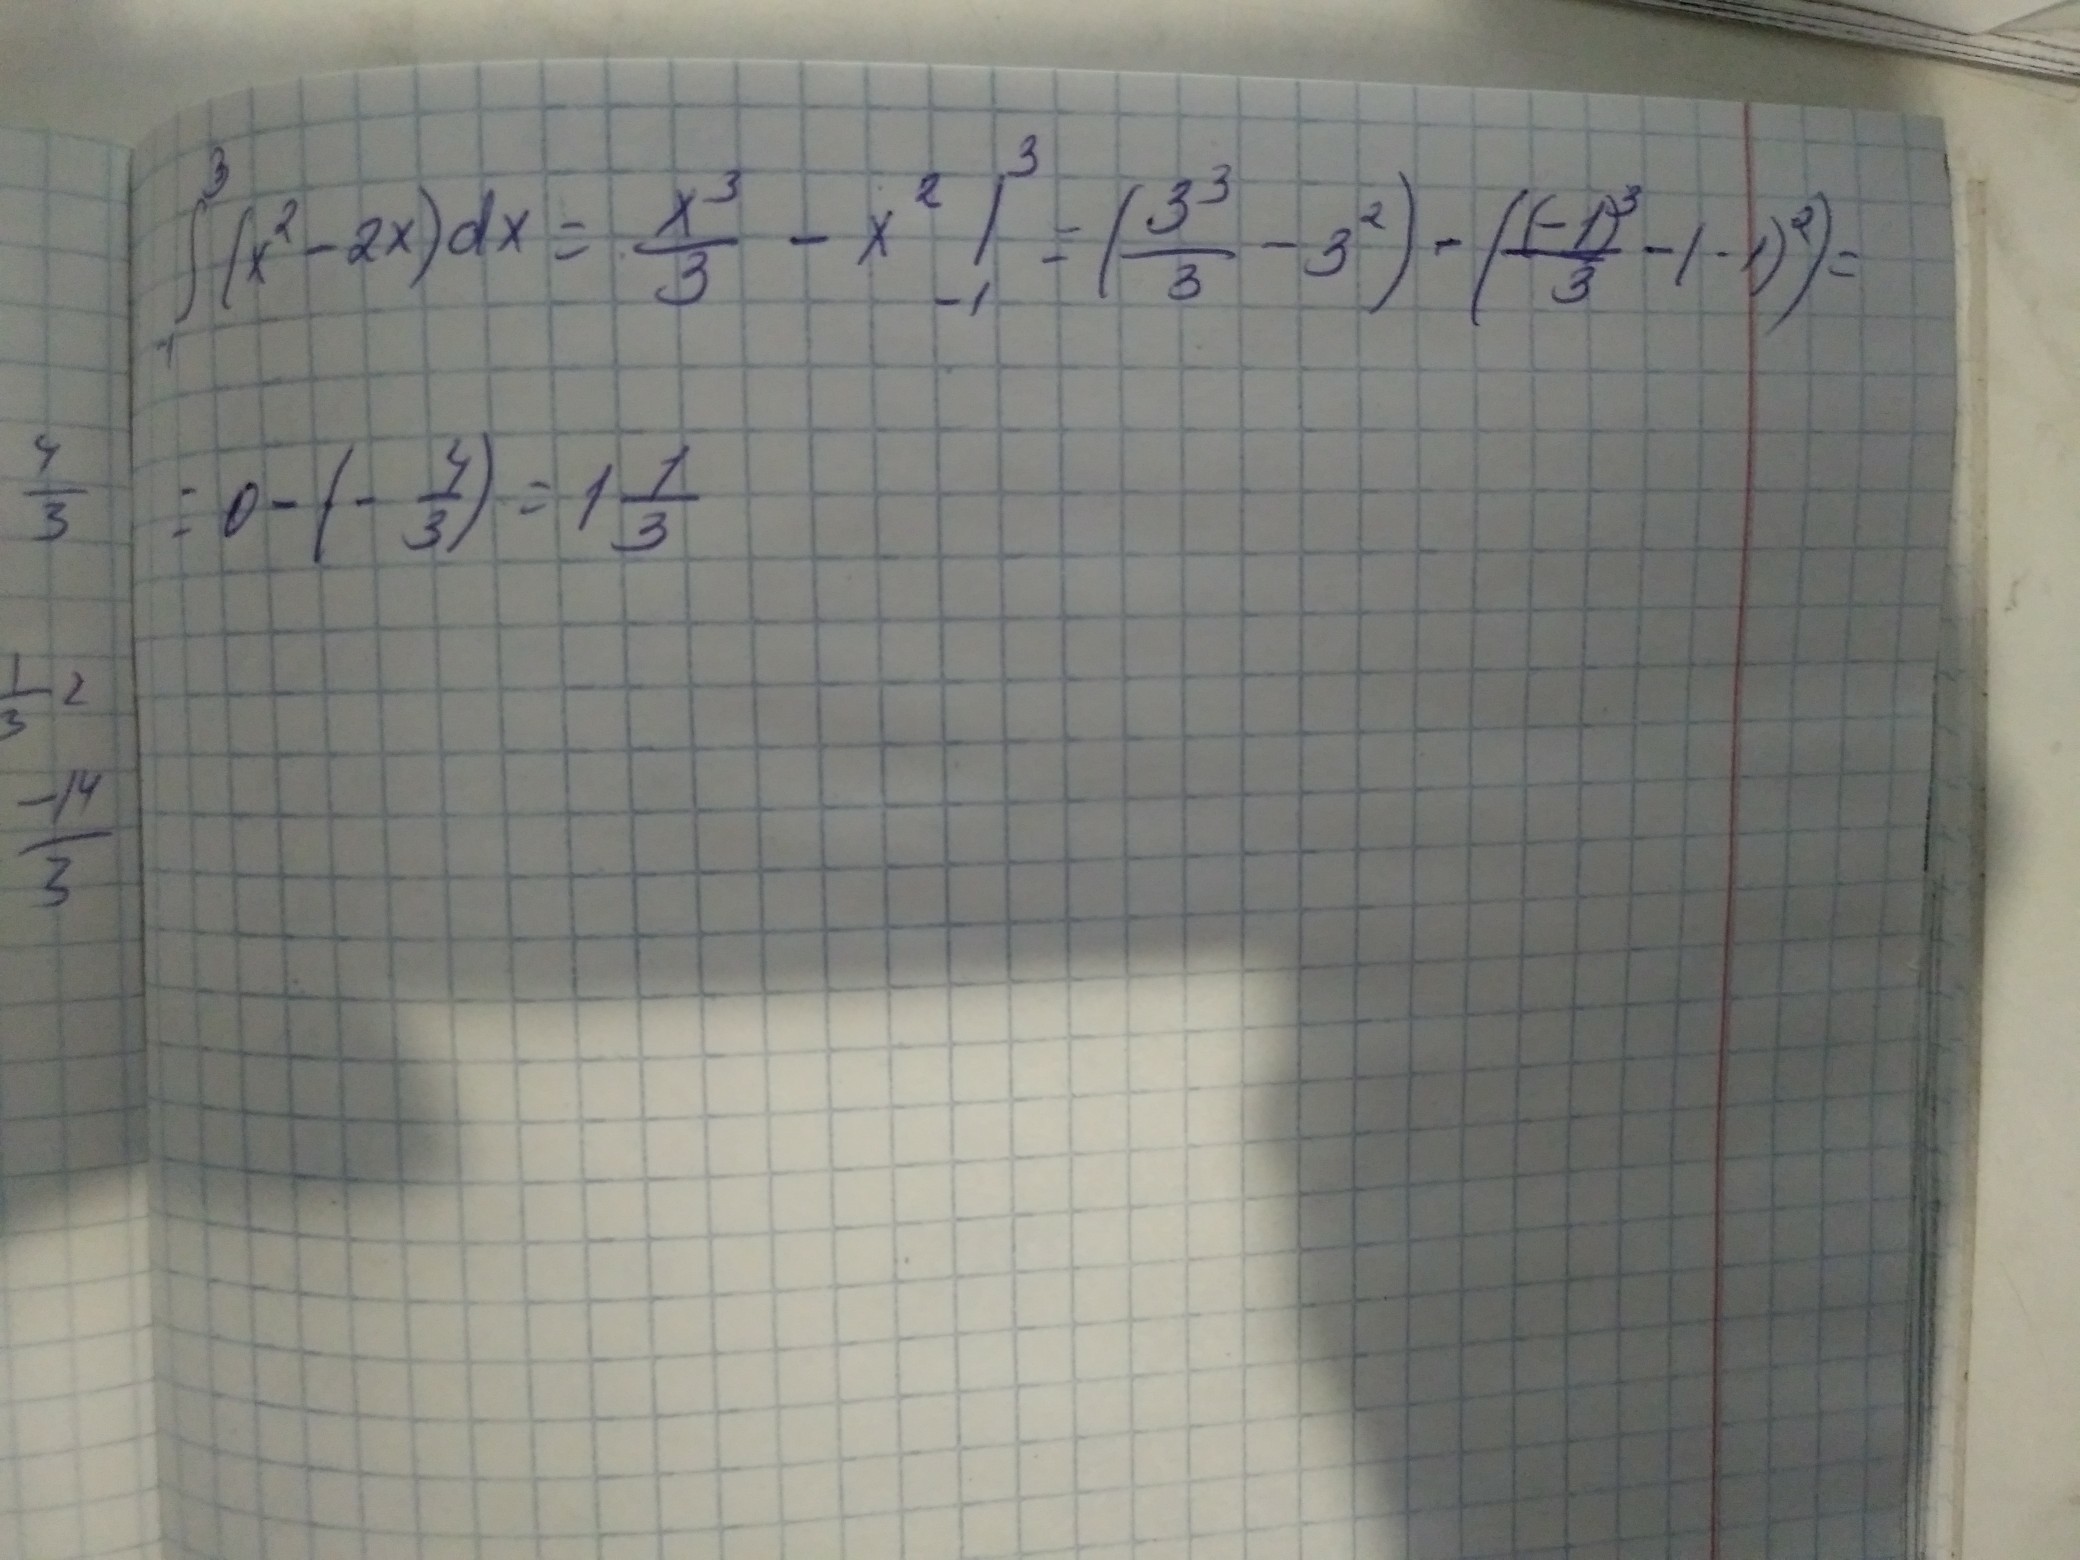 ∫₋₁³ (x² - 2x) dx = x³/3 - x² |₋₁³ = (3³/3 - 3²) - ((-1)³/3 - (-1)²) =
= 0 - (- 4/3) = 1 1/3
4/3
1/3 2
-14/3